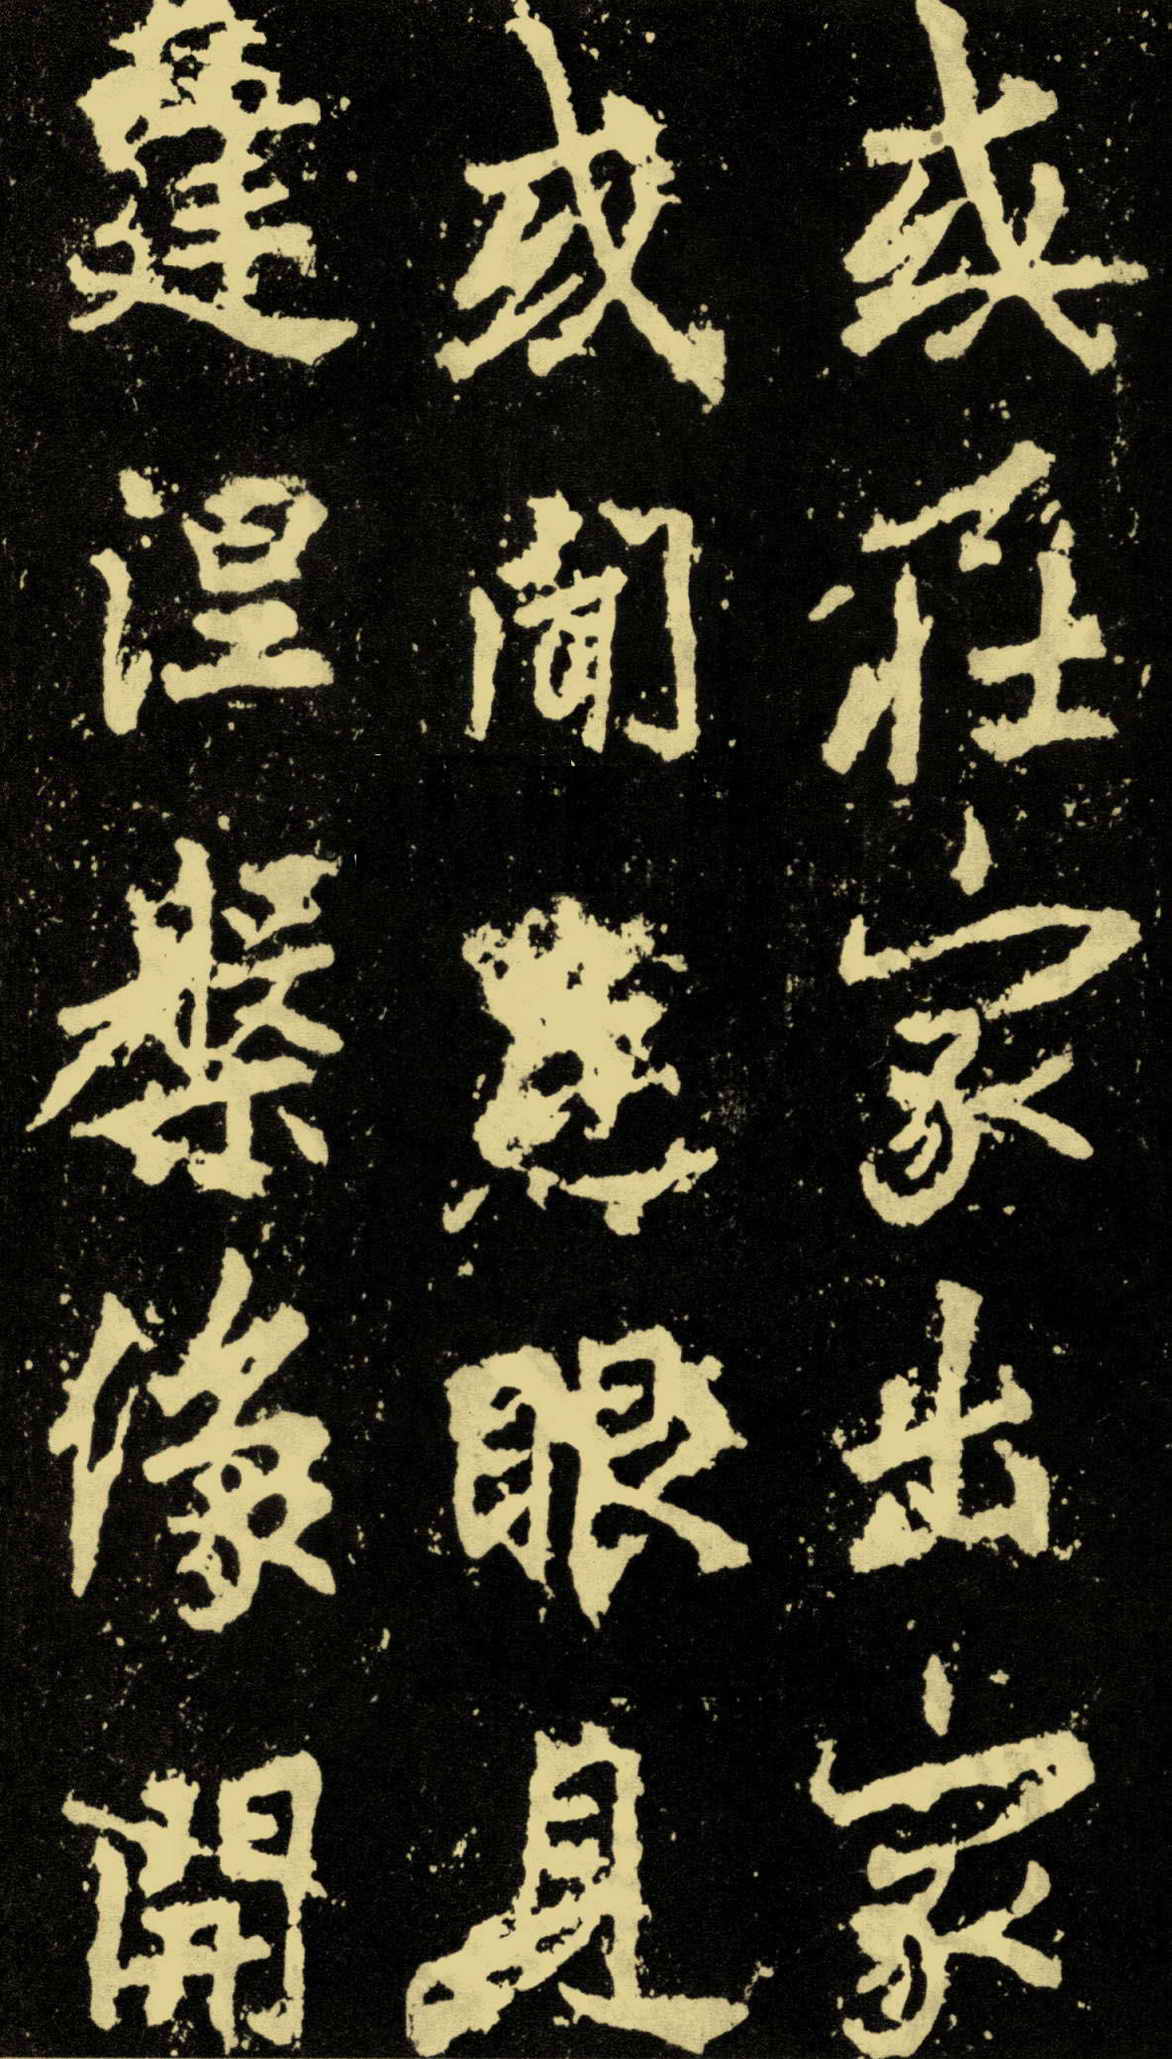 或莊家出家
或聞眼見
涅槃像開